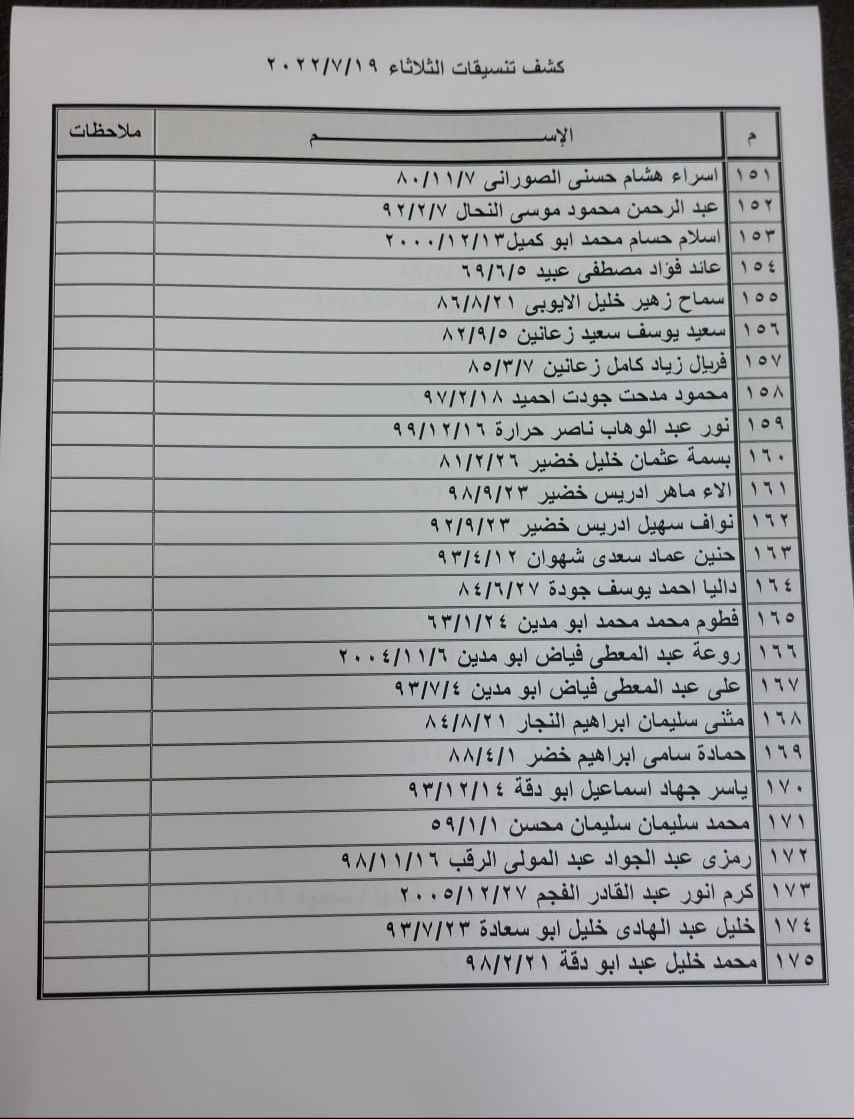 كشف تنسيقات الثلاثاء ٢٠٢٢/٧/١٩
م الإســـــــــــــــم ملاحظات
١٥١ اسراء هشام حسنى الصورانى ٨٠/١١/٧
١٥٢ عبد الرحمن محمود موسى النحال ٩٢/٢/٧
١٥٣ اسلام حسام محمد ابو كميل ٢٠٠٠/١٢/١٣
١٥٤ عائد فؤاد مصطفى عبيد ٦٩/٦/٥
١٥٥ سماح زهير خليل الايوبى ٨٦/٨/٢١
١٥٦ سعيد يوسف سعيد زعانين ٨٢/٩/٥
١٥٧ فريال زياد كامل زعانين ٨٥/٣/٧
١٥٨ محمود مدحت جودت احميد ٩٧/٢/١٨
١٥٩ نور عبد الوهاب ناصر حرارة ٩٩/١٢/١٦
١٦٠ بسمة عثمان خليل خضير ٨١/٢/٢٦
١٦١ الاء ماهر ادريس خضير ٩٨/٩/٢٣
١٦٢ نواف سهيل ادريس خضير ٩٢/٩/٢٣
١٦٣ حنين عماد سعدى شهوان ٩٣/٤/١٢
١٦٤ داليا احمد يوسف جودة ٨٤/٦/٢٧
١٦٥ فطوم محمد محمد ابو مدين ٦٣/١/٢٤
١٦٦ روعة عبد المعطى فياض ابو مدين ٢٠٠٤/١١/٦
١٦٧ على عبد المعطى فياض ابو مدين ٩٣/٧/٤
١٦٨ مثنى سليمان ابراهيم النجار ٨٤/٨/٢١
١٦٩ حمادة سامى ابراهيم خضر ٨٨/٤/١
١٧٠ ياسر جهاد اسماعيل ابو دقة ٩٣/١٢/١٤
١٧١ محمد سليمان سليمان محسن ٥٩/١/١
١٧٢ رمزى عبد الجواد عبد المولى الرقب ٩٨/١١/١٦
١٧٣ كرم انور عبد القادر الفجم ٢٠٠٥/١٢/٢٧
١٧٤ خليل عبد الهادى خليل ابو سعادة ٩٣/٧/٢٣
١٧٥ محمد خليل عبد ابو دقة ٩٨/٢/٢١